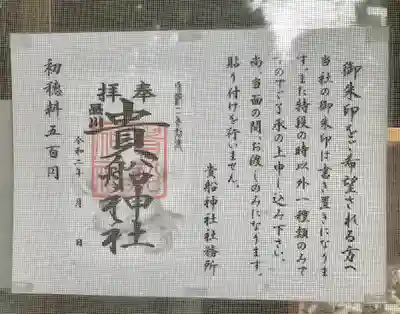 御朱印をご希望される方へ
当社の御朱印は書き置きになりま
す。また特段の時以外一種類のみで
すのでご了承の上申し込み下さい。
尚、当面の間、お渡しのみになります。
貼り付けを行いません。
貴船神社社務所
奉
拝
品川
貴船神社
令和二年 月 日
初穂料五百円